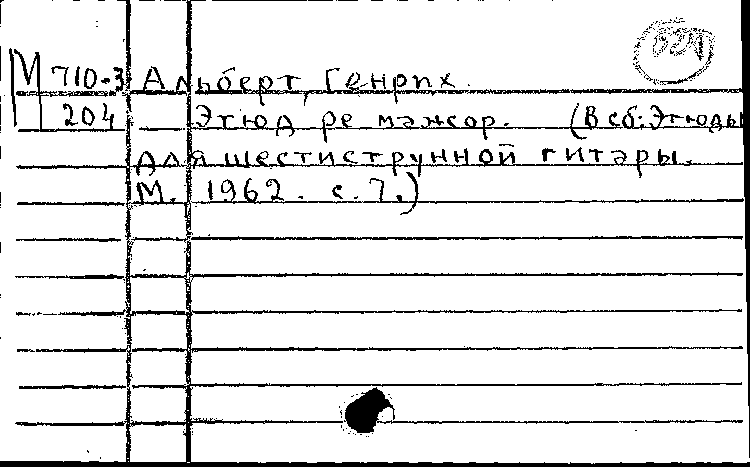 М 710-3 Альберт, Генрих.
204 Этюд ре мажор. (В сб: Этюды
для шестиструнной гитары.
М. 1962. с. 7.)